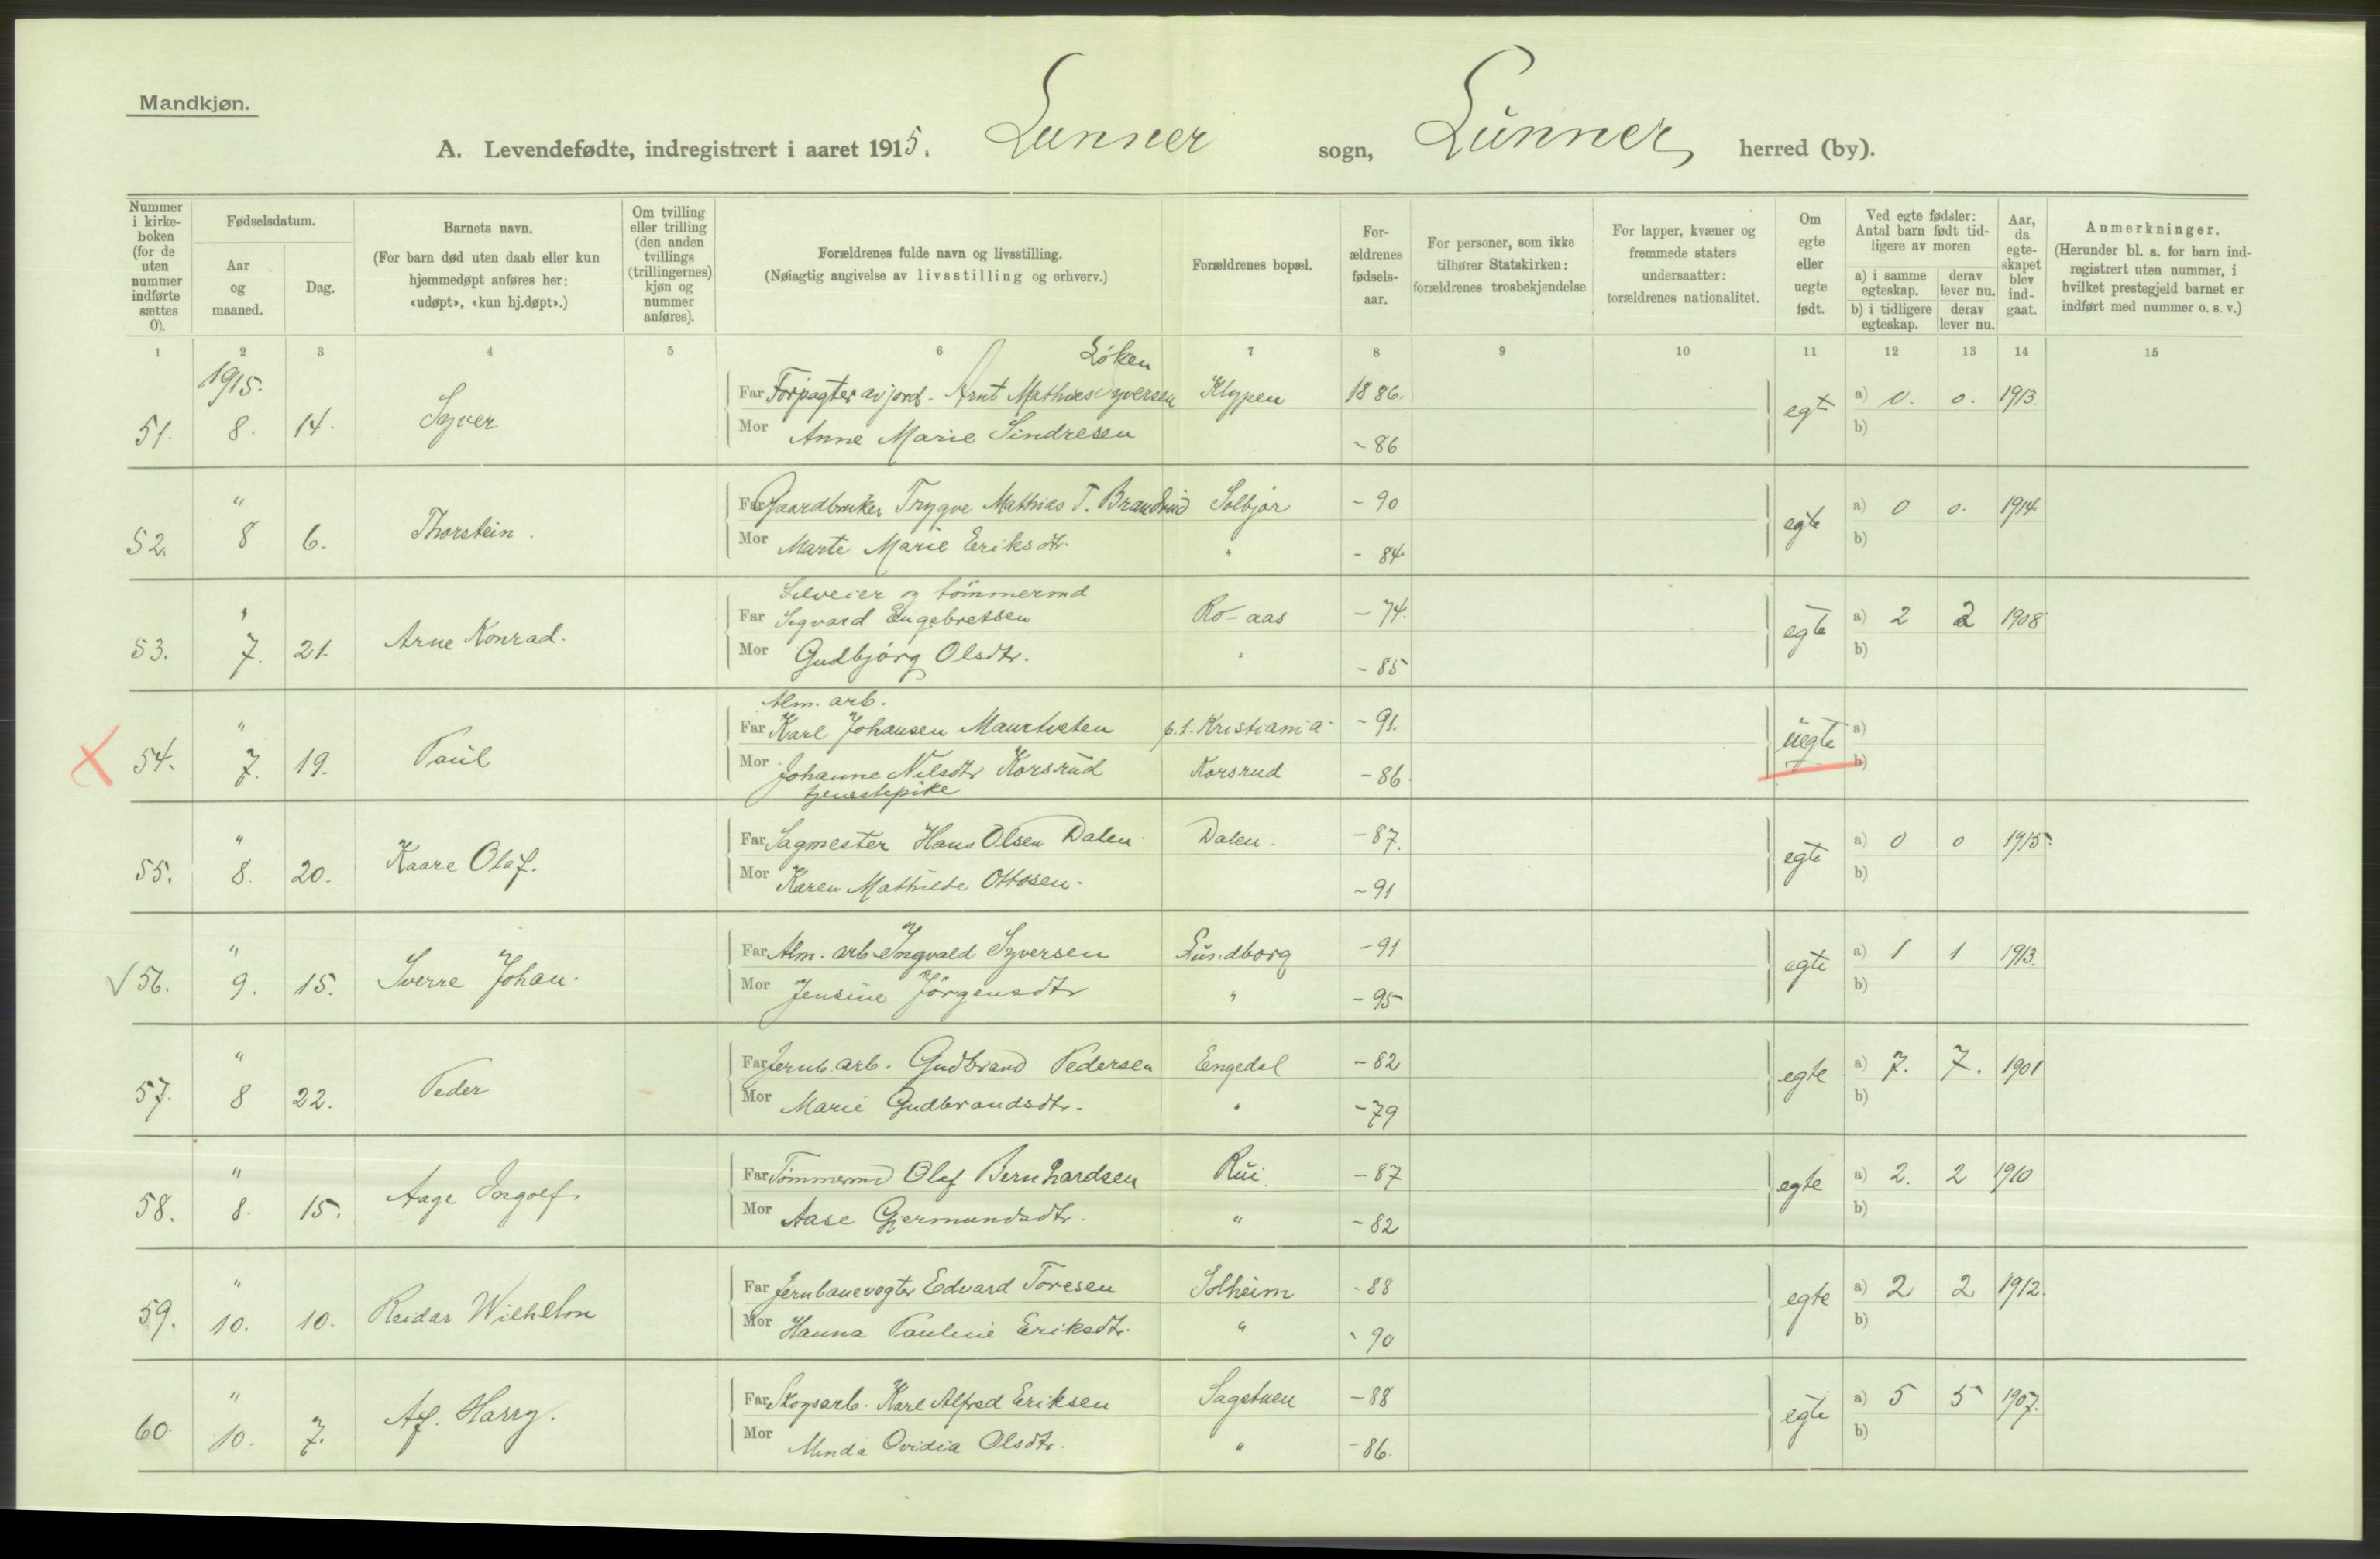 Mandkjøn.
A. Levendefødte, indregistrert i aaret 1915. Lunner sogn, Lunner herred (by).
Nummer i kirke-boken (for de uten nummer indførte sættes 0).
Fødselsdatum.
Aar og maaned.
Dag.
Barnets navn.
(For barn død uten daab eller kun hjemmedøpt anføres her: «udøpt», «kun hj.døpt».)
Om tvilling eller trilling (den anden tvillings (trillingernes) kjøn og nummer anføres).
Forældrenes fulde navn og livsstilling.
(Nøiagtig angivelse av livsstilling og erhverv.)
Forældrenes bopæl.
For-ældrenes fødsels-aar.
For personer, som ikke tilhører Statskirken: forældrenes trosbekjendelse
For lapper, kvæner og fremmede staters undersaatter: forældrenes nationalitet.
Om egte eller uegte født.
Ved egte fødsler: Antal barn født tid-ligere av moren
a) i samme egteskap.
derav lever nu.
b) i tidligere egteskap.
derav lever nu.
Aar, da egte-skapet blev ind-gaat.
Anmerkninger.
(Herunder bl. a. for barn ind-registrert uten nummer, i hvilket prestegjeld barnet er indført med nummer o. s. v.)
1 2 3 4 5 6 7 8 9 10 11 12 13 14 15
1915.
Løken
51. 8. 14. Syver. Far Forpagter av jord. Arnt Mathies Syversen Klypen 1886. egt a) 0. 0. 1913.
Mor Anne Marie Sindresen - 86 b)
52. " 8 6. Thorstein. Far Gaardbruker Trygve Mathias T. Brandrud Solbjør - 90 egte a) 0 0. 1914.
Mor Marte Marie Eriksdtr. " - 84 b)
Selveier og tømmermd
53. " 7. 21. Arne Konrad. Far Sigvard Engebretsen Ro-aas - 74. egte a) 2 2 1908
Mor Gudbjørg Olsdtr. " - 85 b)
Alm. arb.
54. " 7. 19. Paul Far Karl Johansen Maurtveten p.t. Kristiania - 91. uegte a)
Mor Johanne Nilsdtr Korsrud Korsrud - 86. b)
tjenestepike
55. " 8. 20. Kaare Olaf. Far Sagmester Hans Olsen Dalen. Dalen. - 87. egte a) 0 0 1915.
Mor Karen Mathilde Ottosen. - 91 b)
56. " 9. 15. Sverre Johan. Far Alm. arb. Ingvald Syversen Lundborg - 91 egte a) 1 1 1913.
Mor Jensine Jørgensdtr " - 95 b)
57. " 8 22. Peder Far Jernb. arb. Gudbrand Pedersen Engedal - 82 egte a) 7. 7. 1901
Mor Marie Gudbrandsdtr. " - 79 b)
58. " 8. 15. Aage Ingolf. Far Tømmermd Olaf Bernhardsen Rui. - 87 egte a) 2. 2 1910
Mor Aase Gjermundsdtr. " - 82 b)
59. " 10. 10. Reidar Wilhelm Far Jernbanevogter Edvard Toresen Solheim - 88 egte a) 2 2 1912.
Mor Hanna Pauline Eriksdtr. " - 90 b)
60. " 10. 7. Alf. Harry. Far Skogsarb. Karl Alfred Eriksen Sagstuen - 88 egte a) 5 5 1907.
Mor Minda Ovidia Olsdtr. " - 86. b)